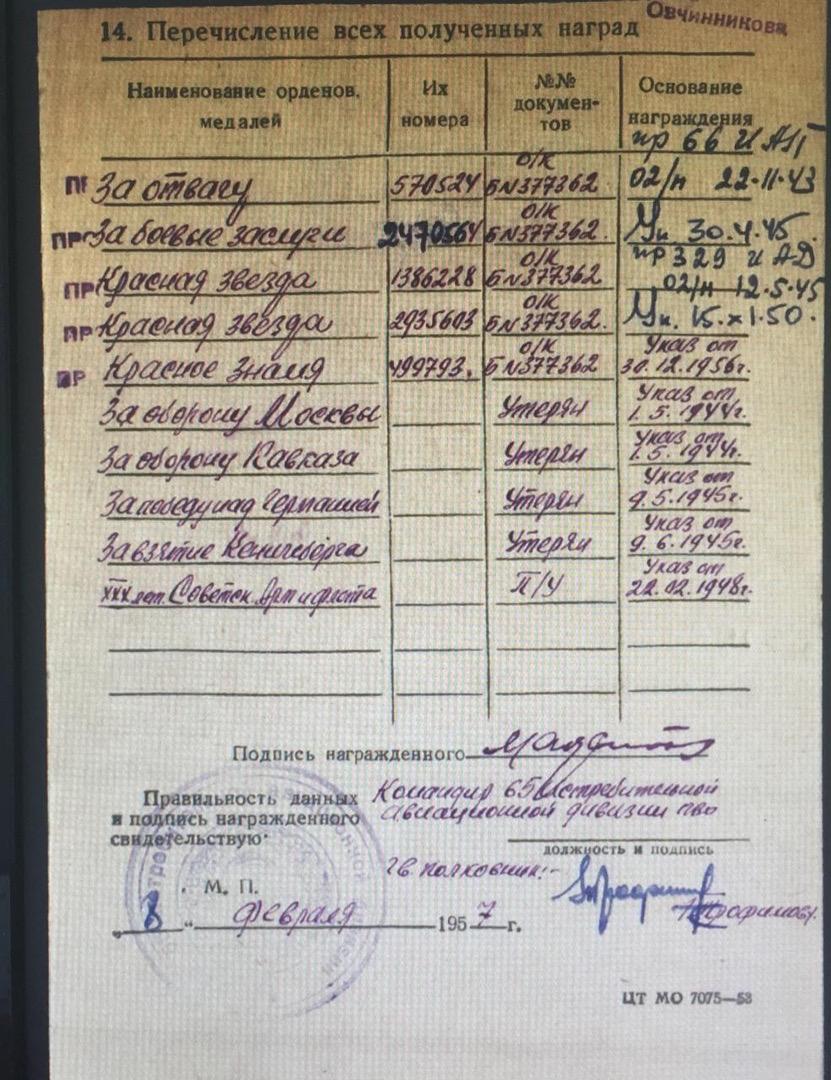 Овчинникова
14. Перечисление всех полученных наград
Наименование орденов, медалей
Их номера
№№ документов
Основание награждения
пр 66 И АП
ПР За отвагу 570524 О/К Б N377362 02/н 22-11-43
ПР За боевые заслуги 2470564 О/К Б N377362. Ук. 30.4.45.
пр 329 И АД
ПР Красная звезда 1386228 О/К Б N377362 02/н 12.5.45
ПР Красная звезда 2935603 О/К Б N377362. Ук. 15.XI.50.
ПР Красное Знамя 499793. О/К Б N377362 Указ от 30.12.1956г.
За оборону Москвы Утерян Указ от 1.5.1944г.
За оборону Кавказа Утерян Указ от 1.5.1944г.
За победу над Германией Утерян Указ от 9.5.1945г.
За взятие Кенигсберга Утерян Указ от 9.6.1945г.
XXX лет. Советск. Арм и флота П/У Указ от 22.02.1948г.
Подпись награжденного
Правильность данных
и подпись награжденного
свидетельствую:
Командир 65 Истребительной
авиационной дивизии ПВО
должность и подпись
Гв полковник:-
М. П.
Трофимов
„8“ февраля 1957 г.
ЦТ МО 7075—53